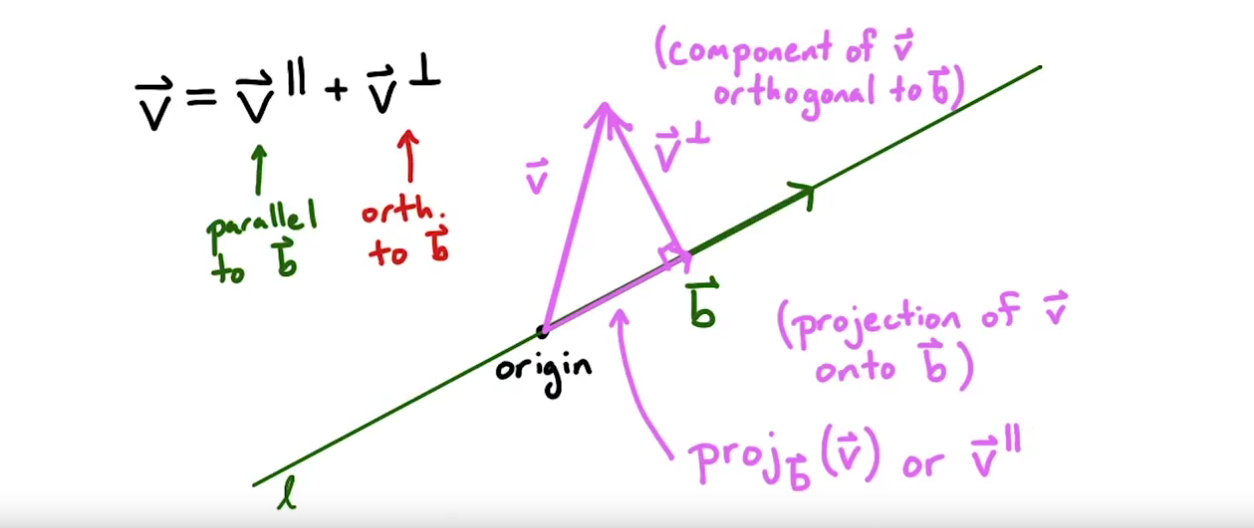 v⃗ = v⃗ ∥ + v⃗ ⊥
↑ ↑
parallel
to b⃗
orth.
to b⃗
(component of v⃗
orthogonal to b⃗)
v⃗
v⃗ ⊥
b⃗
origin
(projection of v⃗
onto b⃗)
proj b⃗ (v⃗) or v⃗ ∥
l